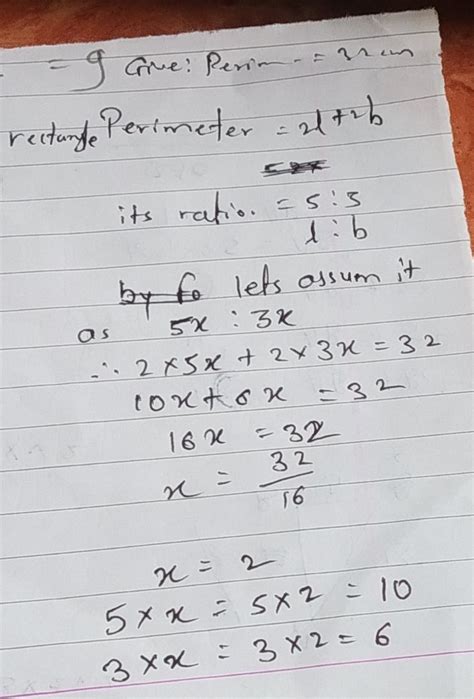 = 9 Give: Perim - = 32 cm
rectangle Perimeter = 2l + 2b
its ratio. = 5 : 3
l : b
by fo lets assum it
as 5x : 3x
∴ 2 × 5x + 2 × 3x = 32
10x + 6x = 32
16x = 32
x = 32/16
x = 2
5 × x = 5 × 2 = 10
3 × x = 3 × 2 = 6